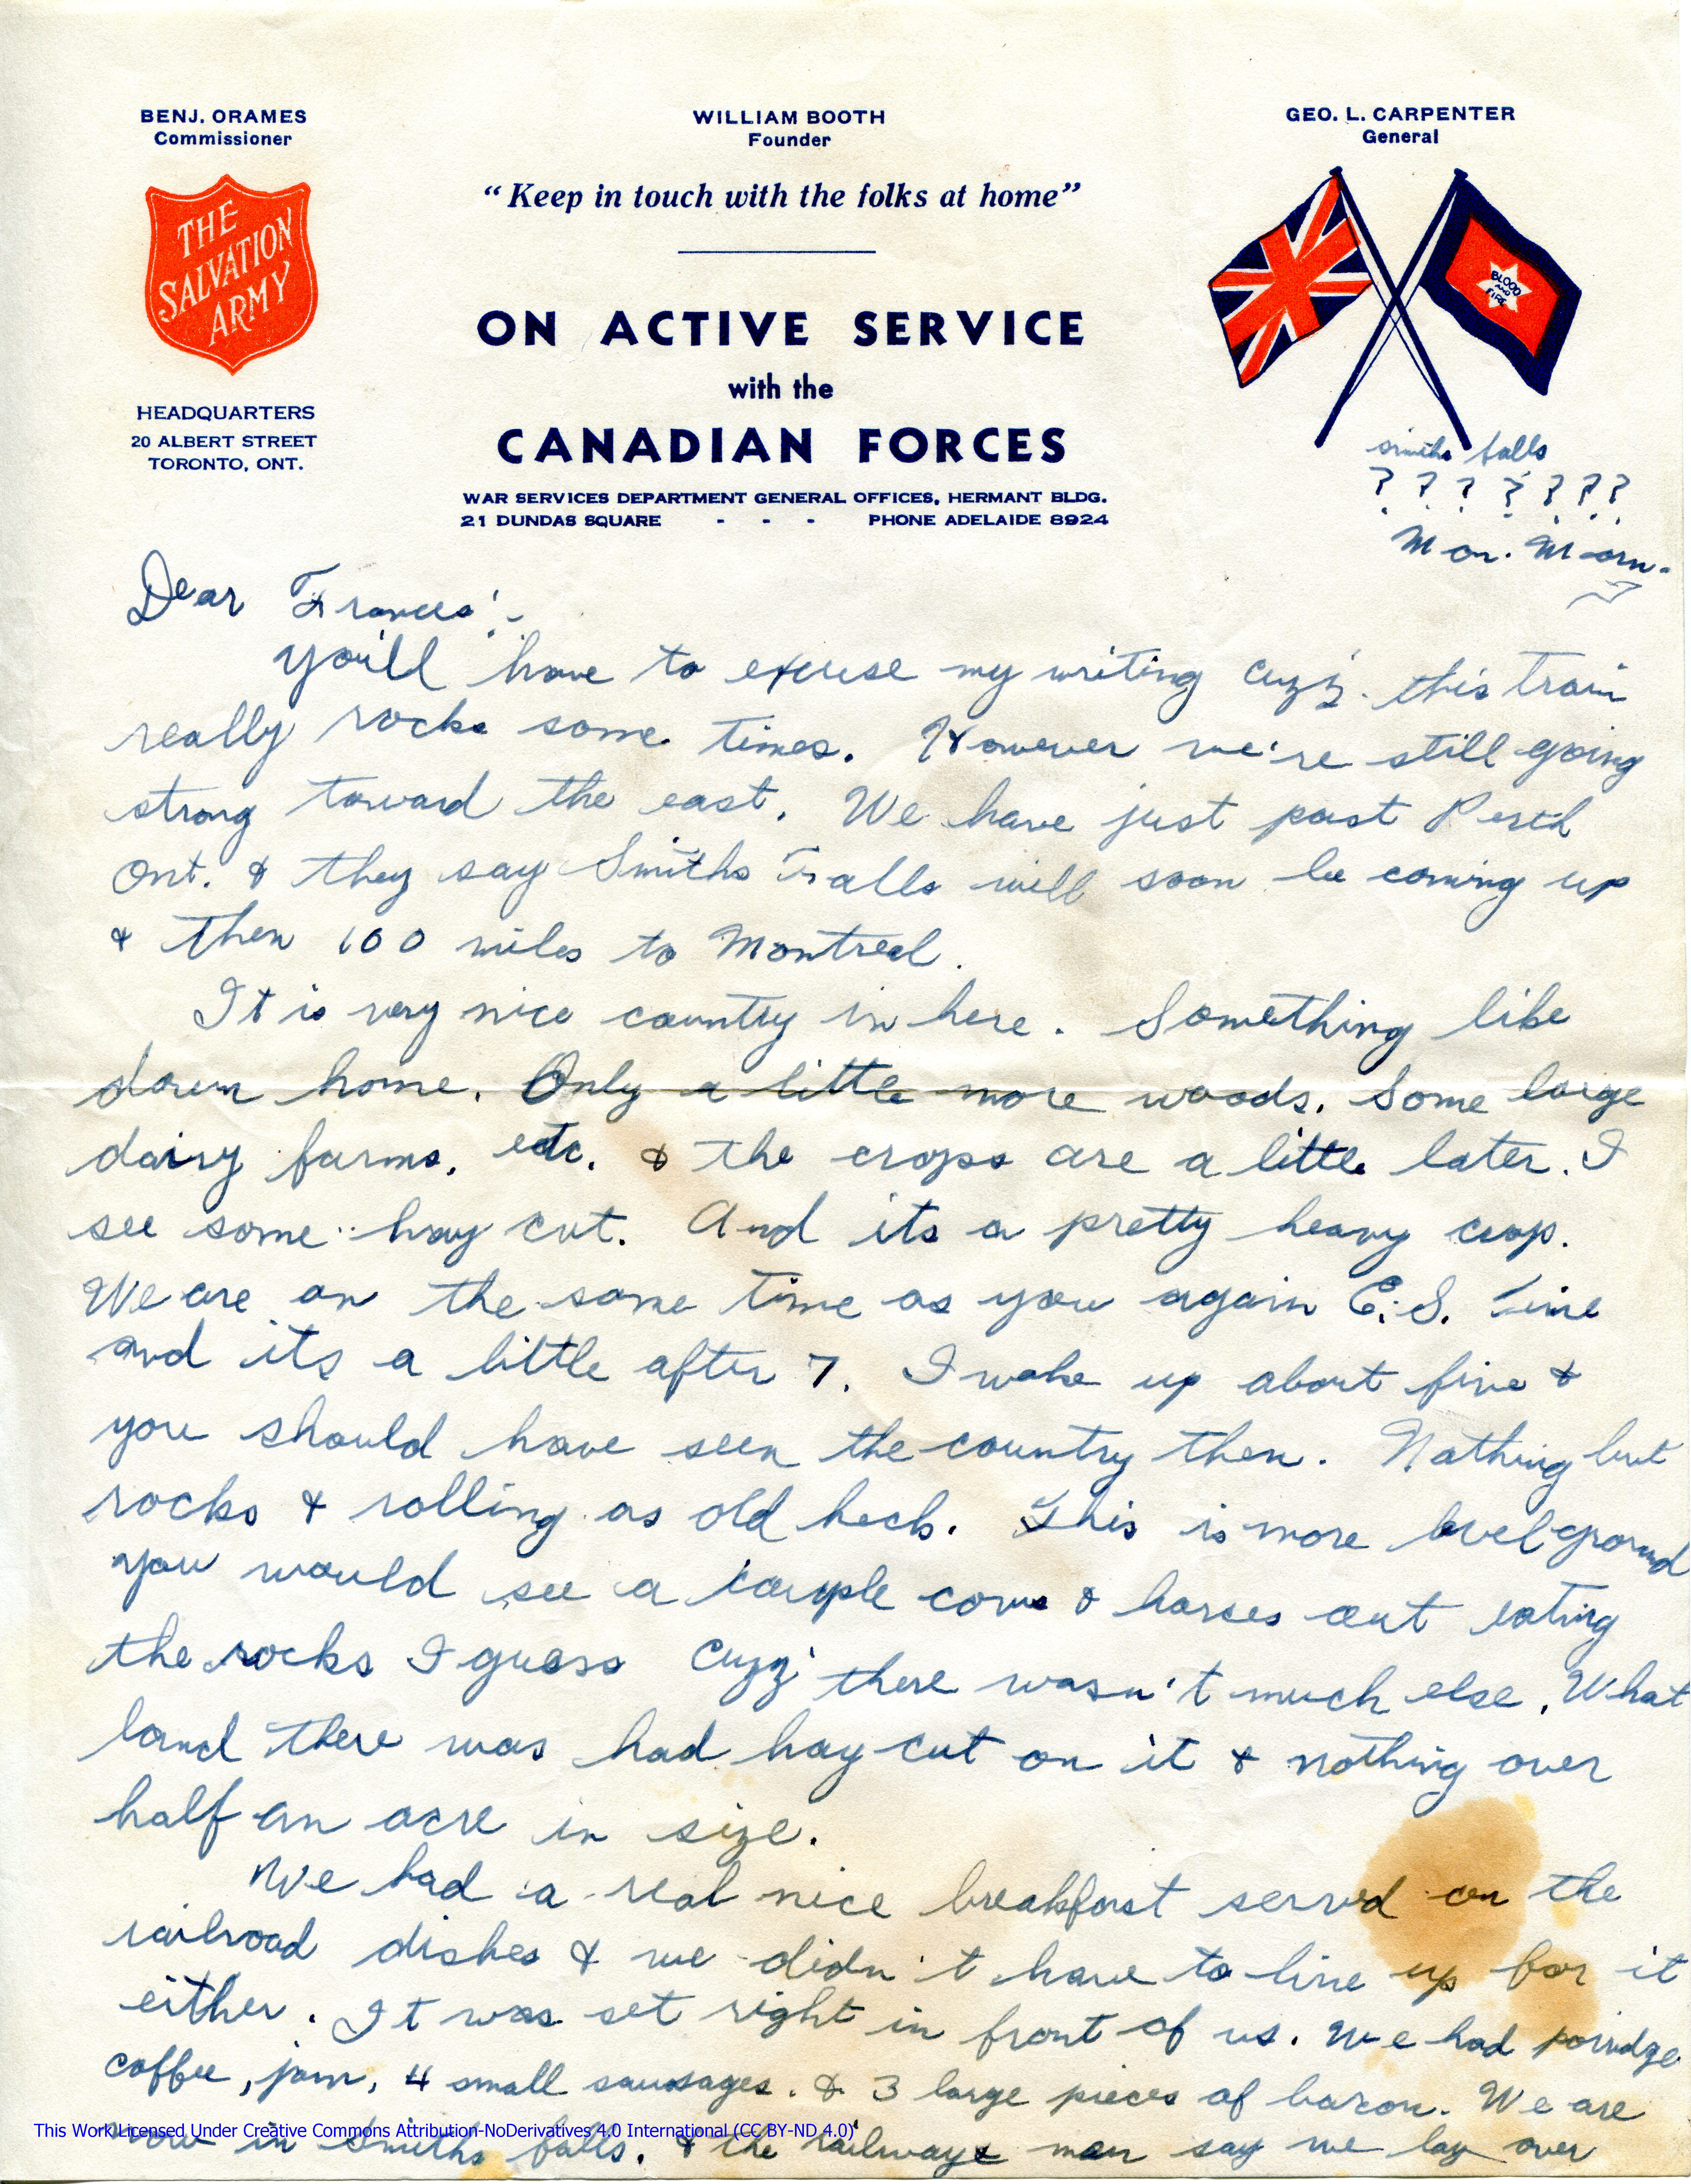 BENJ. ORAMES
Commissioner
WILLIAM BOOTH
Founder
GEO. L. CARPENTER
General
"Keep in touch with the folks at home"
THE
SALVATION
ARMY
BLOOD
AND
FIRE
ON ACTIVE SERVICE
with the
CANADIAN FORCES
HEADQUARTERS
20 ALBERT STREET
TORONTO, ONT.
WAR SERVICES DEPARTMENT GENERAL OFFICES, HERMANT BLDG.
21 DUNDAS SQUARE - - - PHONE ADELAIDE 8924
smiths falls
? ? ? ? ? ? ?
Mon. Morn.
Dear Frances:-
You'll have to excuse my writing cuzz. this train
really rocks some times. However we're still going
strong toward the east. We have just past Perth
Ont. & they say Smiths Falls will soon be coming up
& then 100 miles to Montreal.
It is very nice country in here. Something like
down home. Only a little more woods. Some large
dairy farms, etc. & the crops are a little later. I
see some hay cut. And its a pretty heavy crop.
We are on the same time as you again E.S. Time
and its a little after 7. I woke up about five &
you should have seen the country then. Nothing but
rocks & rolling as old heck. This is more level ground
you would see a couple cows & horses out eating
the rocks I guess cuzz' there wasn't much else. What
land there was had hay cut on it & nothing over
half an acre in size.
We had a real nice breakfast served on the
railroad dishes & we didn't have to line up for it
either. It was set right in front of us. We had porridge
coffee, jam, 4 small sausages. & 3 large pieces of bacon. We are
now in Smiths falls. & the railways man say we lay over
This Work Licensed Under Creative Commons Attribution-NoDerivatives 4.0 International (CC BY-ND 4.0)